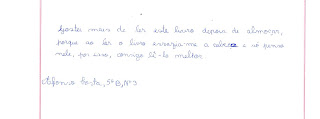 Gosto mais de ler este livro depois de almoçar,
porque ao ler o livro esvazia-me a cabeça e só penso
nele, por isso, consigo lê-lo melhor.
Afonso Costa, 5ºB, Nº3